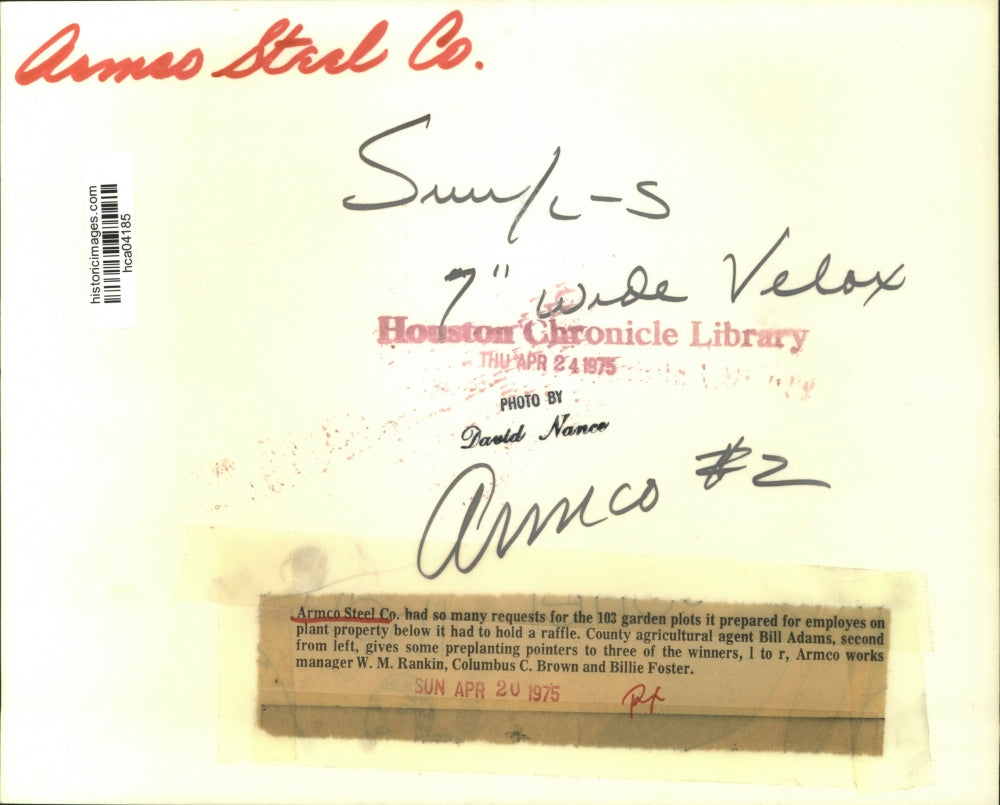 Armco Steel Co.
Sun/L-S
7" wide Velox
historicimages.com
hca04185
Houston Chronicle Library
THU APR 24 1975
PHOTO BY
David Nance
Armco #2
Armco Steel Co. had so many requests for the 103 garden plots it prepared for employes on
plant property below it had to hold a raffle. County agricultural agent Bill Adams, second
from left, gives some preplanting pointers to three of the winners, l to r, Armco works
manager W. M. Rankin, Columbus C. Brown and Billie Foster.
SUN APR 20 1975